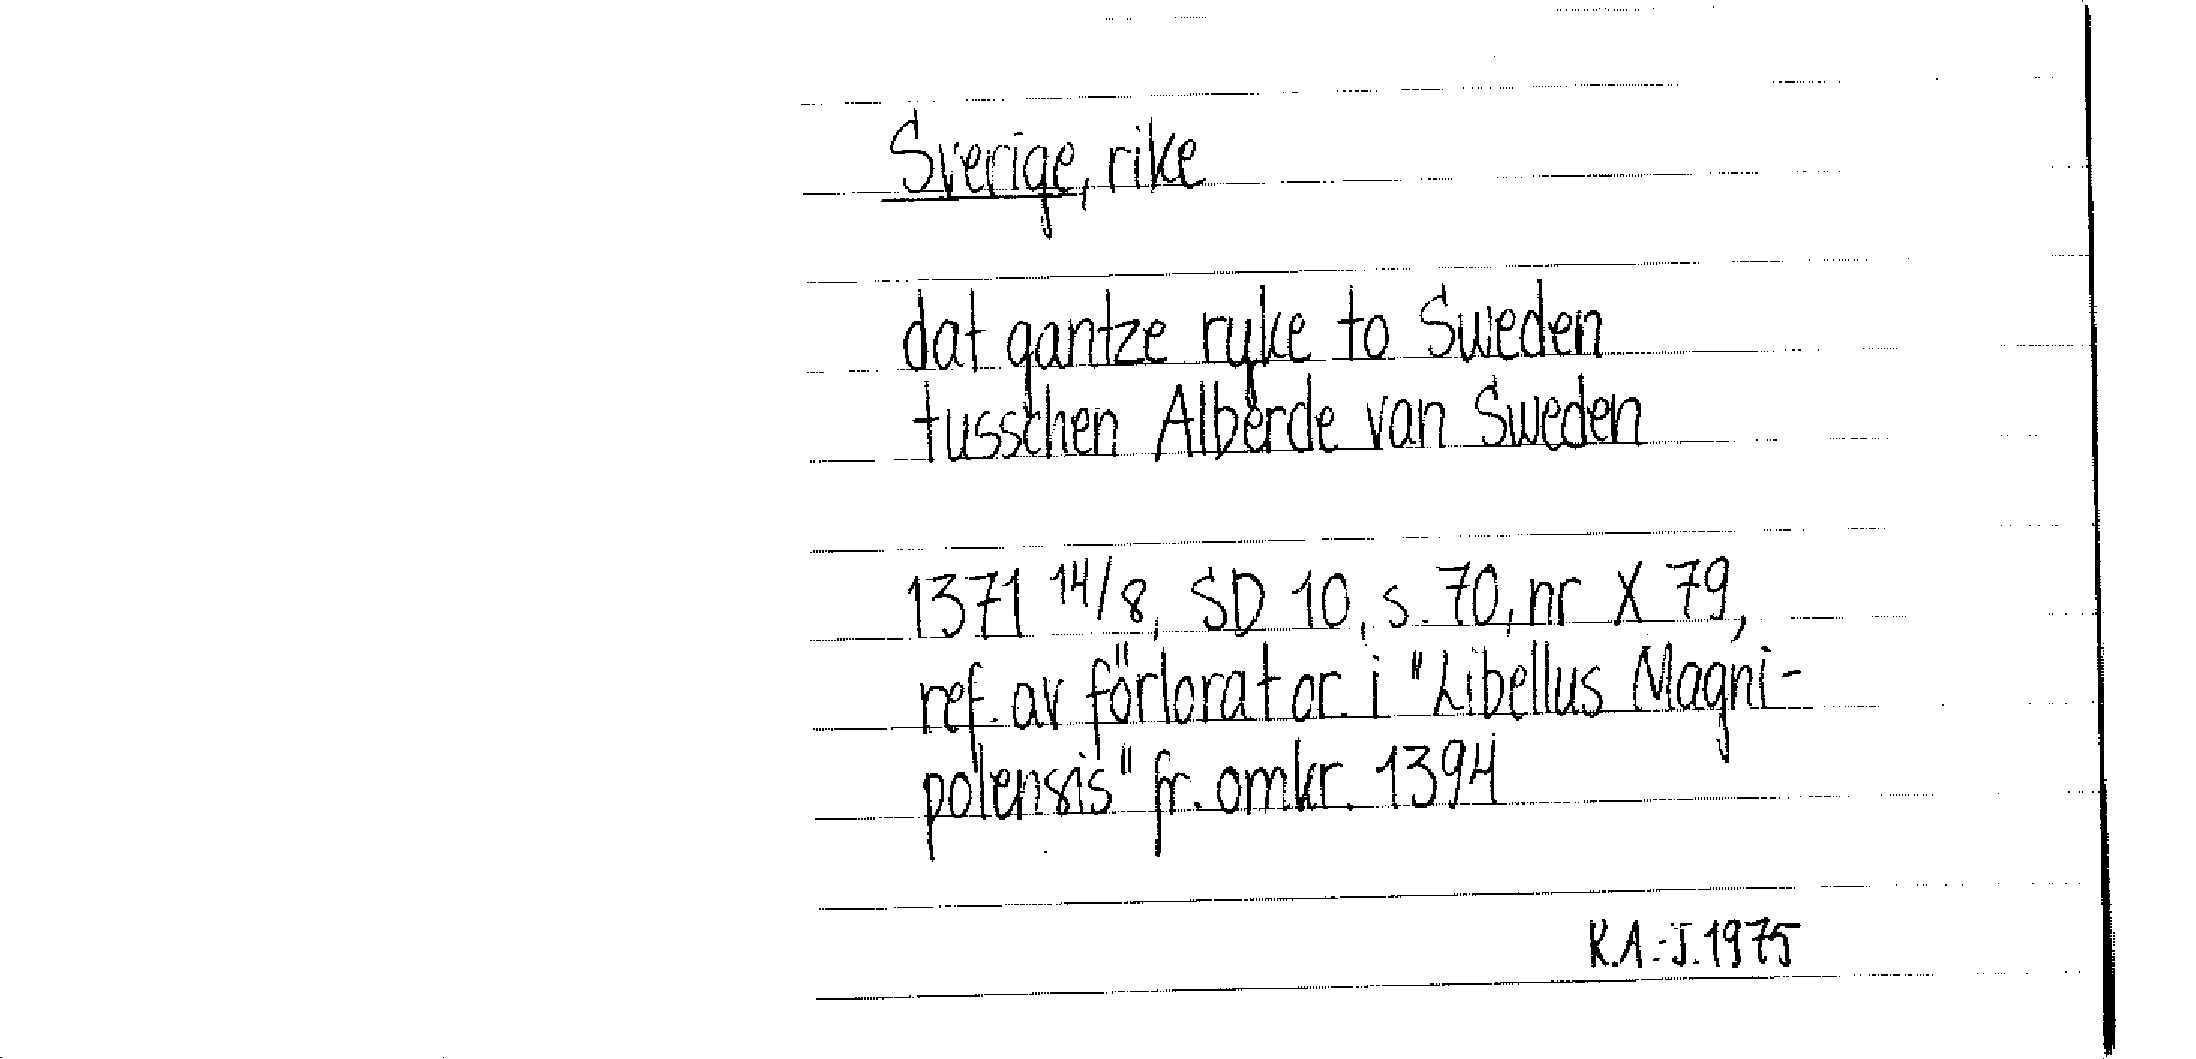 Sverige, rike
dat gantze ryke to Sweden
tusschen Alberde van Sweden
1371 14/8, SD 10, s. 70, nr X 79,
ref. av förlorat or. i "Libellus Magni-
polensis" fr. omkr. 1394
K.A.-J. 1975